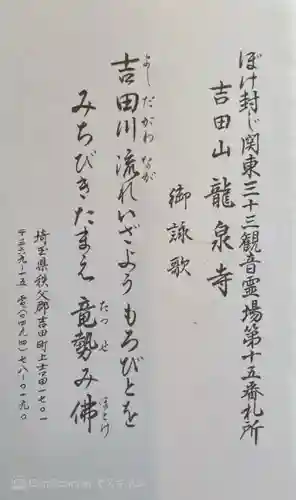 ぼけ封じ関東三十三観音霊場第十五番札所
吉田山 龍泉寺
御詠歌
吉田川流れいざようもろびとを
よしだがわ なが
みちびきたまえ 竜勢み佛
たつせ ほとけ
埼玉県秩父郡吉田町上吉田一七〇一
〒三六九-一五 電(〇四九四)七八-〇一九〇